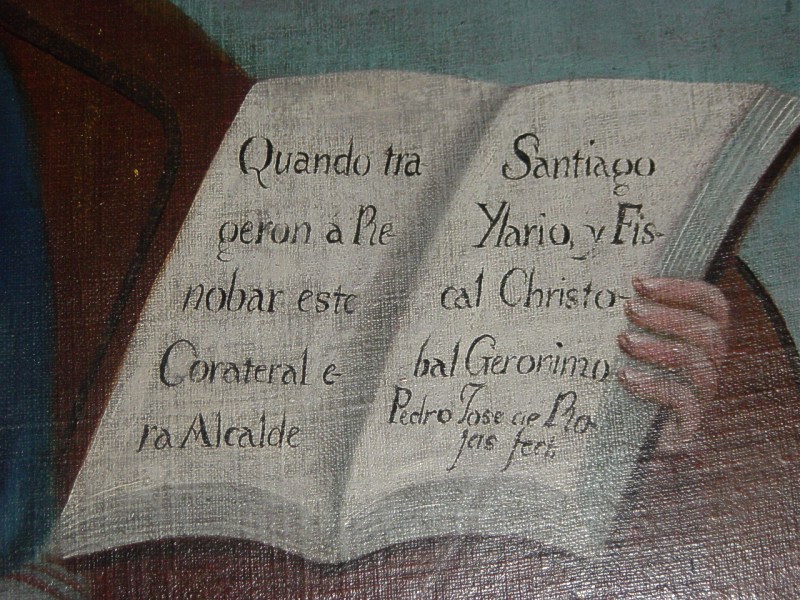 Quando tra
geron á Re
nobar este
Corateral e-
ra Alcalde
Santiago
Ylario, y Fis-
cal Christo-
bal Geronimo
Pedro Jose de Ro-
jas fecit